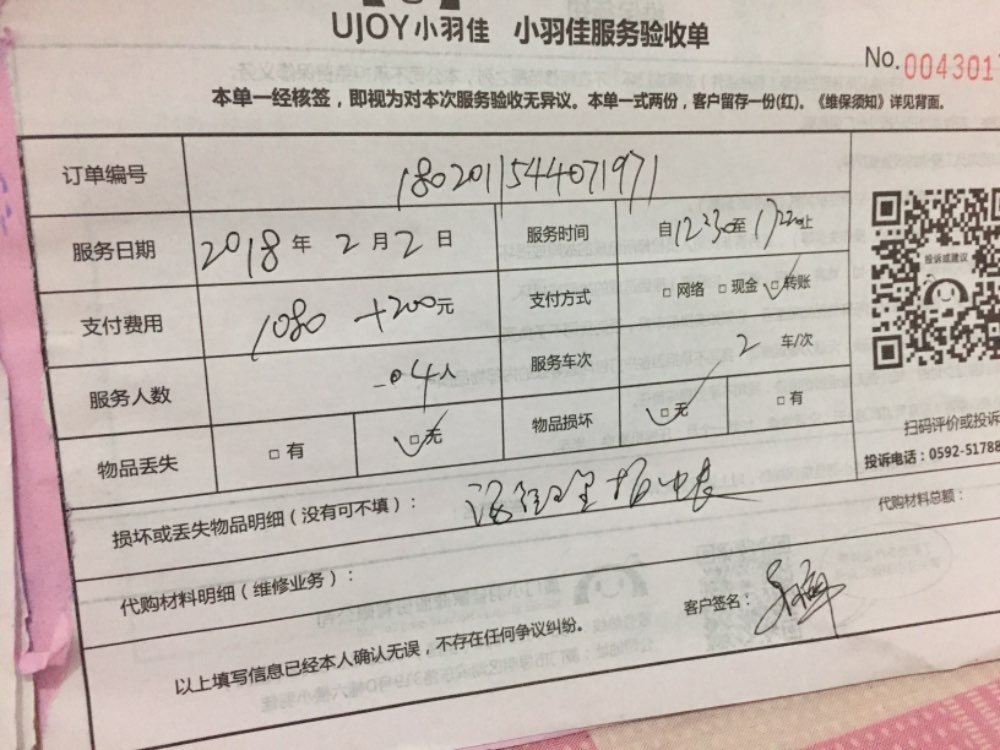 UJOY小羽佳 小羽佳服务验收单
No. 0043017
本单一经核签，即视为对本次服务验收无异议。本单一式两份，客户留存一份(红)。《维保须知》详见背面。
订单编号 1802011544071971
服务日期 2018 年 2 月 2 日 服务时间 自1230至1720止
投诉或建议
支付费用 1080 +200元 支付方式 □网络 □现金 □转账
服务人数 04人 服务车次 2 车/次
物品丢失 □有 □无 物品损坏 □无 □有
扫码评价或投诉
投诉电话：0592-51788
损坏或丢失物品明细（没有可不填）：
代购材料总额：
代购材料明细（维修业务）：
客户签名：
以上填写信息已经本人确认无误，不存在任何争议纠纷。